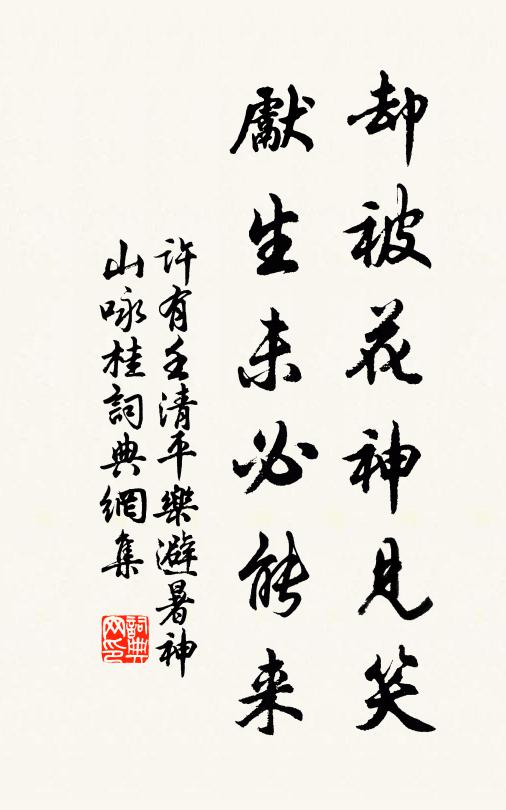 却被花神見笑
獻生未必能来
許有壬清平樂避暑神
山咏桂詞典網集
詞典网印